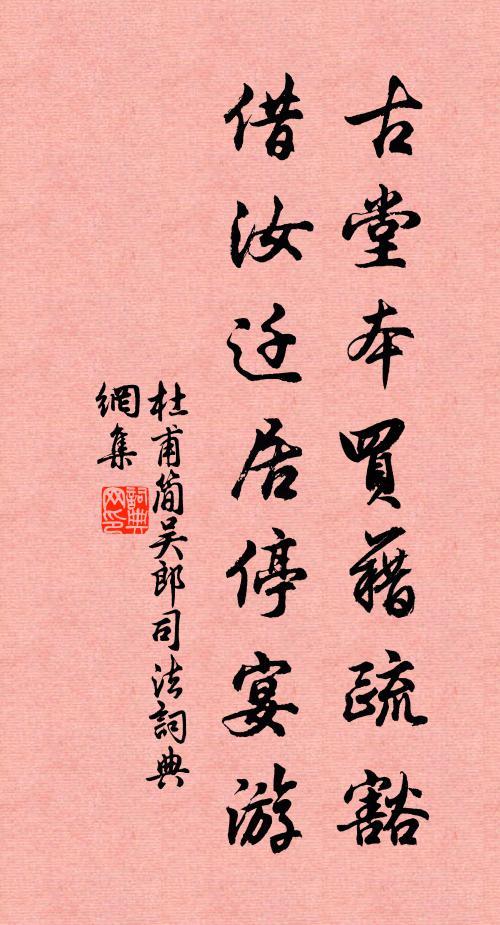 古堂本買藉疏豁
借汝迁居停宴游
杜甫简吴郎司法詞典
網集
詞典网印